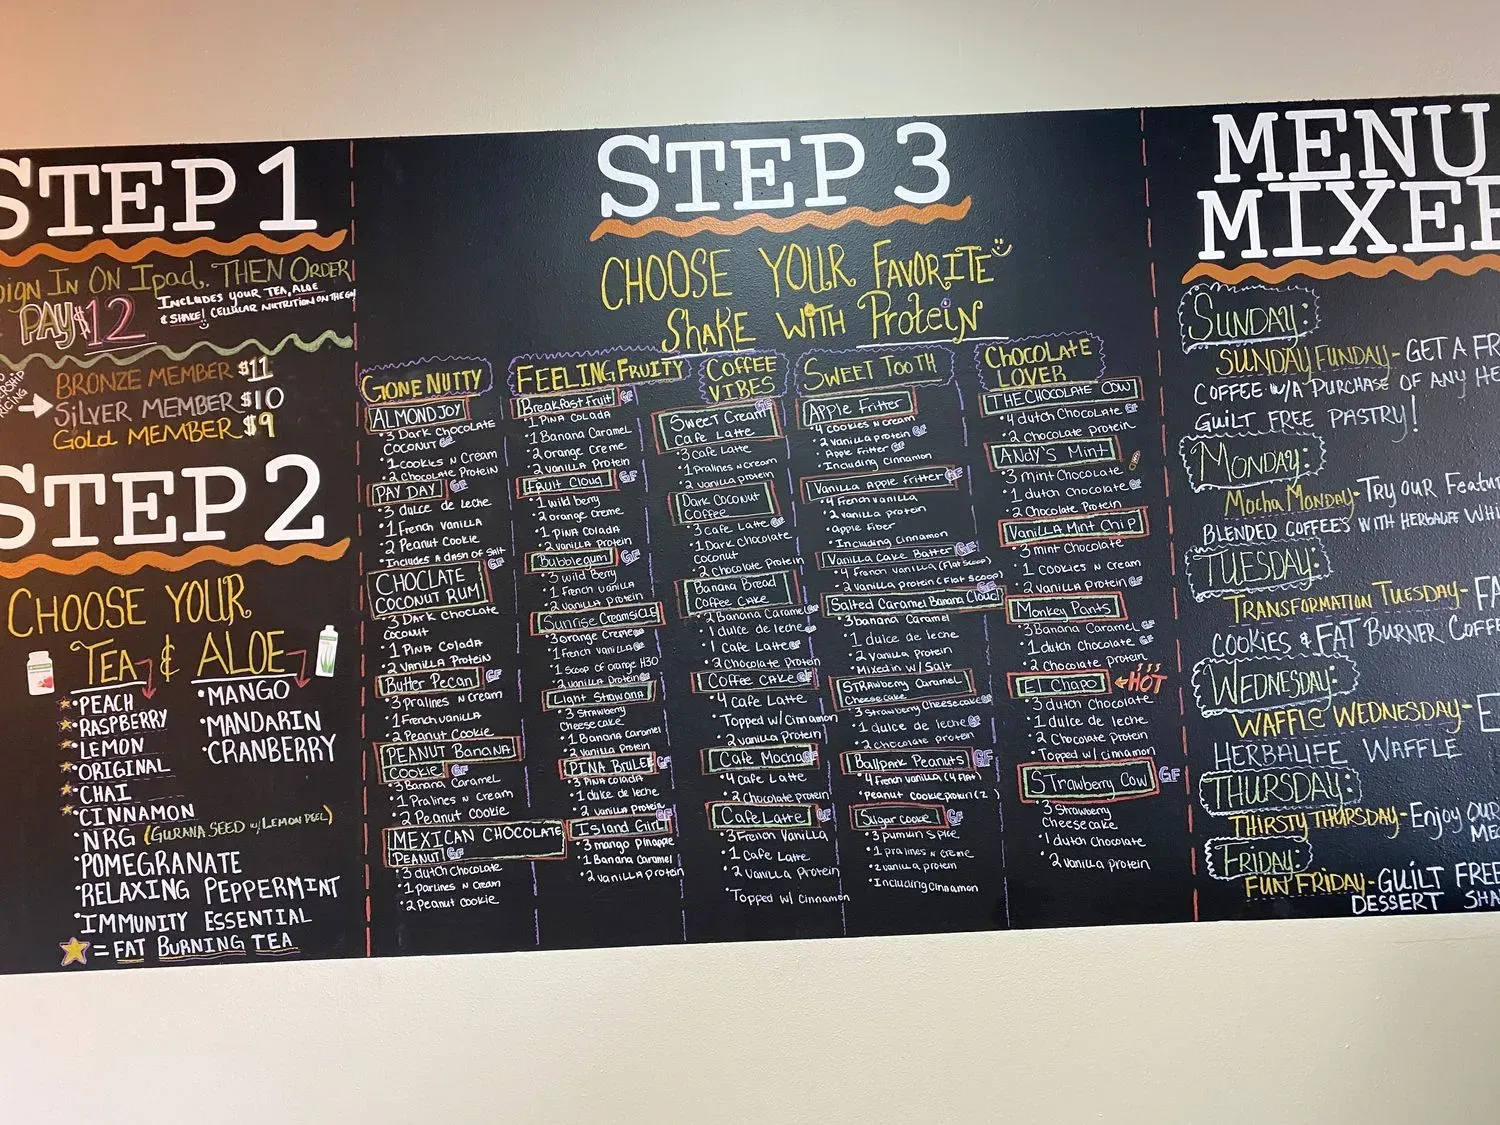 STEP 1
SIGN IN ON Ipad, THEN ORDER
PAY $12
INCLUDES YOUR TEA, ALOE
& SHAKE! CELLULAR NUTRITION ON THE GO
BRONZE MEMBER $11
SILVER MEMBER $10
GOLD MEMBER $9
STEP 2
CHOOSE YOUR
TEA & ALOE
•PEACH
•RASPBERRY
•LEMON
•ORIGINAL
•CHAI
•CINNAMON
•NRG (GURANA SEED w/ LEMON PEEL)
•POMEGRANATE
•RELAXING PEPPERMINT
•IMMUNITY ESSENTIAL
= FAT BURNING TEA
•MANGO
•MANDARIN
•CRANBERRY
STEP 3
CHOOSE YOUR FAVORITE
SHAKE WITH Protein
GONE NUTTY
ALMOND JOY
•3 DARK CHOCOLATE
COCONUT GF
•1 COOKIES N CREAM
•2 CHOCOLATE PROTEIN
PAY DAY GF
•3 dulce de leche
•1 French vanilla
•2 Peanut Cookie
•Includes a dash of Salt
CHOCLATE
COCONUT RUM GF
•3 Dark Chocolate
Coconut
•1 Pina Colada
•2 Vanilla Protein
Butter Pecan GF
•3 Pralines N Cream
•1 French vanilla
•2 Peanut Cookie
PEANUT BANANA
COOKIE GF
•3 Banana Caramel
•1 Pralines N Cream
•2 Peanut Cookie
MEXICAN CHOCOLATE
PEANUT GF
•3 dutch Chocolate
•1 Parlines N Cream
•2 Peanut Cookie
FEELING FRUITY
Breakfast Fruit GF
•1 Pina Colada
•1 Banana Caramel
•2 orange Creme
•2 Vanilla Protein
Fruit Cloud GF
•1 wild berry
•2 orange Creme
•1 Pina Colada
•2 Vanilla Protein
Bubblegum GF
•3 Wild Berry
•1 French Vanilla
•2 Vanilla Protein
Sunrise Creamsicle
•3 orange Creme GF
•1 French vanilla GF
•1 Scoop of orange H3O
•2 Vanilla Protein GF
Light Strawana
•3 Strawberry
Cheesecake
•1 Banana Caramel
•2 Vanilla Protein
PINA BRULEE GF
•3 Pina Colada
•1 dulce de leche
•2 Vanilla Protein
Island Girl GF
•3 mango Pinapple
•1 Banana Caramel
•2 Vanilla Protan
COFFEE
VIBES
GF
Sweet Cream
Cafe Latte
•3 Cafe Latte
•1 Pralines n Cream
•2 Vanilla Protein
Dark Coconut
Coffee
•3 Cafe Latte GF
•1 Dark Chocolate
Coconut
•2 Chocolate Protein
Banana Bread
Coffee Cake
•2 Banana Caramel GF
•1 dulce de leche GF
•1 Cafe Latte GF
•2 Chocolate Protein
COFFEE CAKE GF
•4 Cafe Latte
•Topped w/ Cinnamon
•2 Vanilla Protein
Cafe Mocha GF
•4 Cafe Latte
•2 Chocolate Protein
Cafe Latte GF
•3 French Vanilla
•1 Cafe Latte
•2 Vanilla Protein
•Topped w/ Cinnamon
SWEET TOOTH
Apple Fritter
•4 Cookies n Cream
•2 Vanilla Protein GF
•Apple Fritter GF
•Including Cinnamon
Vanilla Apple Fritter GF
•4 French vanilla
•2 vanilla protein
•apple Fiber
•Including Cinnamon
Vanilla Cake Batter GF
•4 French vanilla (Flat Scoop)
•2 Vanilla protein (Flat Scoop)
Salted Caramel Banana Cloud GF
•3 banana Caramel
•1 dulce de leche
•2 Vanilla Protein
•Mixed in w/ Salt
STRAWberry Caramel
Cheesecake
•3 Strawberry Cheesecake GF
•1 dulce de leche GF
•2 Chocolate Protein GF
Ballpark Peanuts GF
•4 French vanilla (4 Flat)
•Peanut Cookie Protein (2)
Sugar Cookie GF
•3 Pumkin Spice
•1 pralines n creme
•2 vanilla protein
•Including Cinnamon
CHOCOLATE
LOVER
THE CHOCOLATE COW
•4 dutch Chocolate GF
•2 Chocolate Protein
ANDY'S MINT
•3 mint Chocolate
•1 dutch Chocolate GF
•2 Chocolate Protein
Vanilla Mint Chip
•3 mint Chocolate
•1 Cookies N Cream
•2 Vanilla Protein GF
Monkey Pants
•3 Banana Caramel GF
•1 dutch Chocolate
•2 Chocolate Protein
EL Chapo HOT
•3 dutch Chocolate
•1 dulce de leche
•2 Chocolate Protein
•Topped w/ Cinnamon
STrawberry Cow GF
•3 Strawberry
Cheesecake
•1 dutch Chocolate
•2 Vanilla Protein
MENU
MIXER
SUNDAY:
SUNDAY FUNDAY- GET A FR
COFFEE w/A PURCHASE OF ANY HE
GUILT FREE PASTRY!
MONDAY:
MOCHA MONDAY- TRY OUR FEATU
BLENDED COFFEES WITH HERBALIFE WHI
TUESDAY:
TRANSFORMATION TUESDAY- FA
COOKIES & FAT BURNER COFF
WEDNESDAY:
WAFFLE WEDNESDAY-
HERBALIFE WAFFLE
THURSDAY:
THIRSTY THURSDAY- ENJOY OUR
ME
FRIDAY:
FUN FRIDAY- GUILT FREE
DESSERT SHA